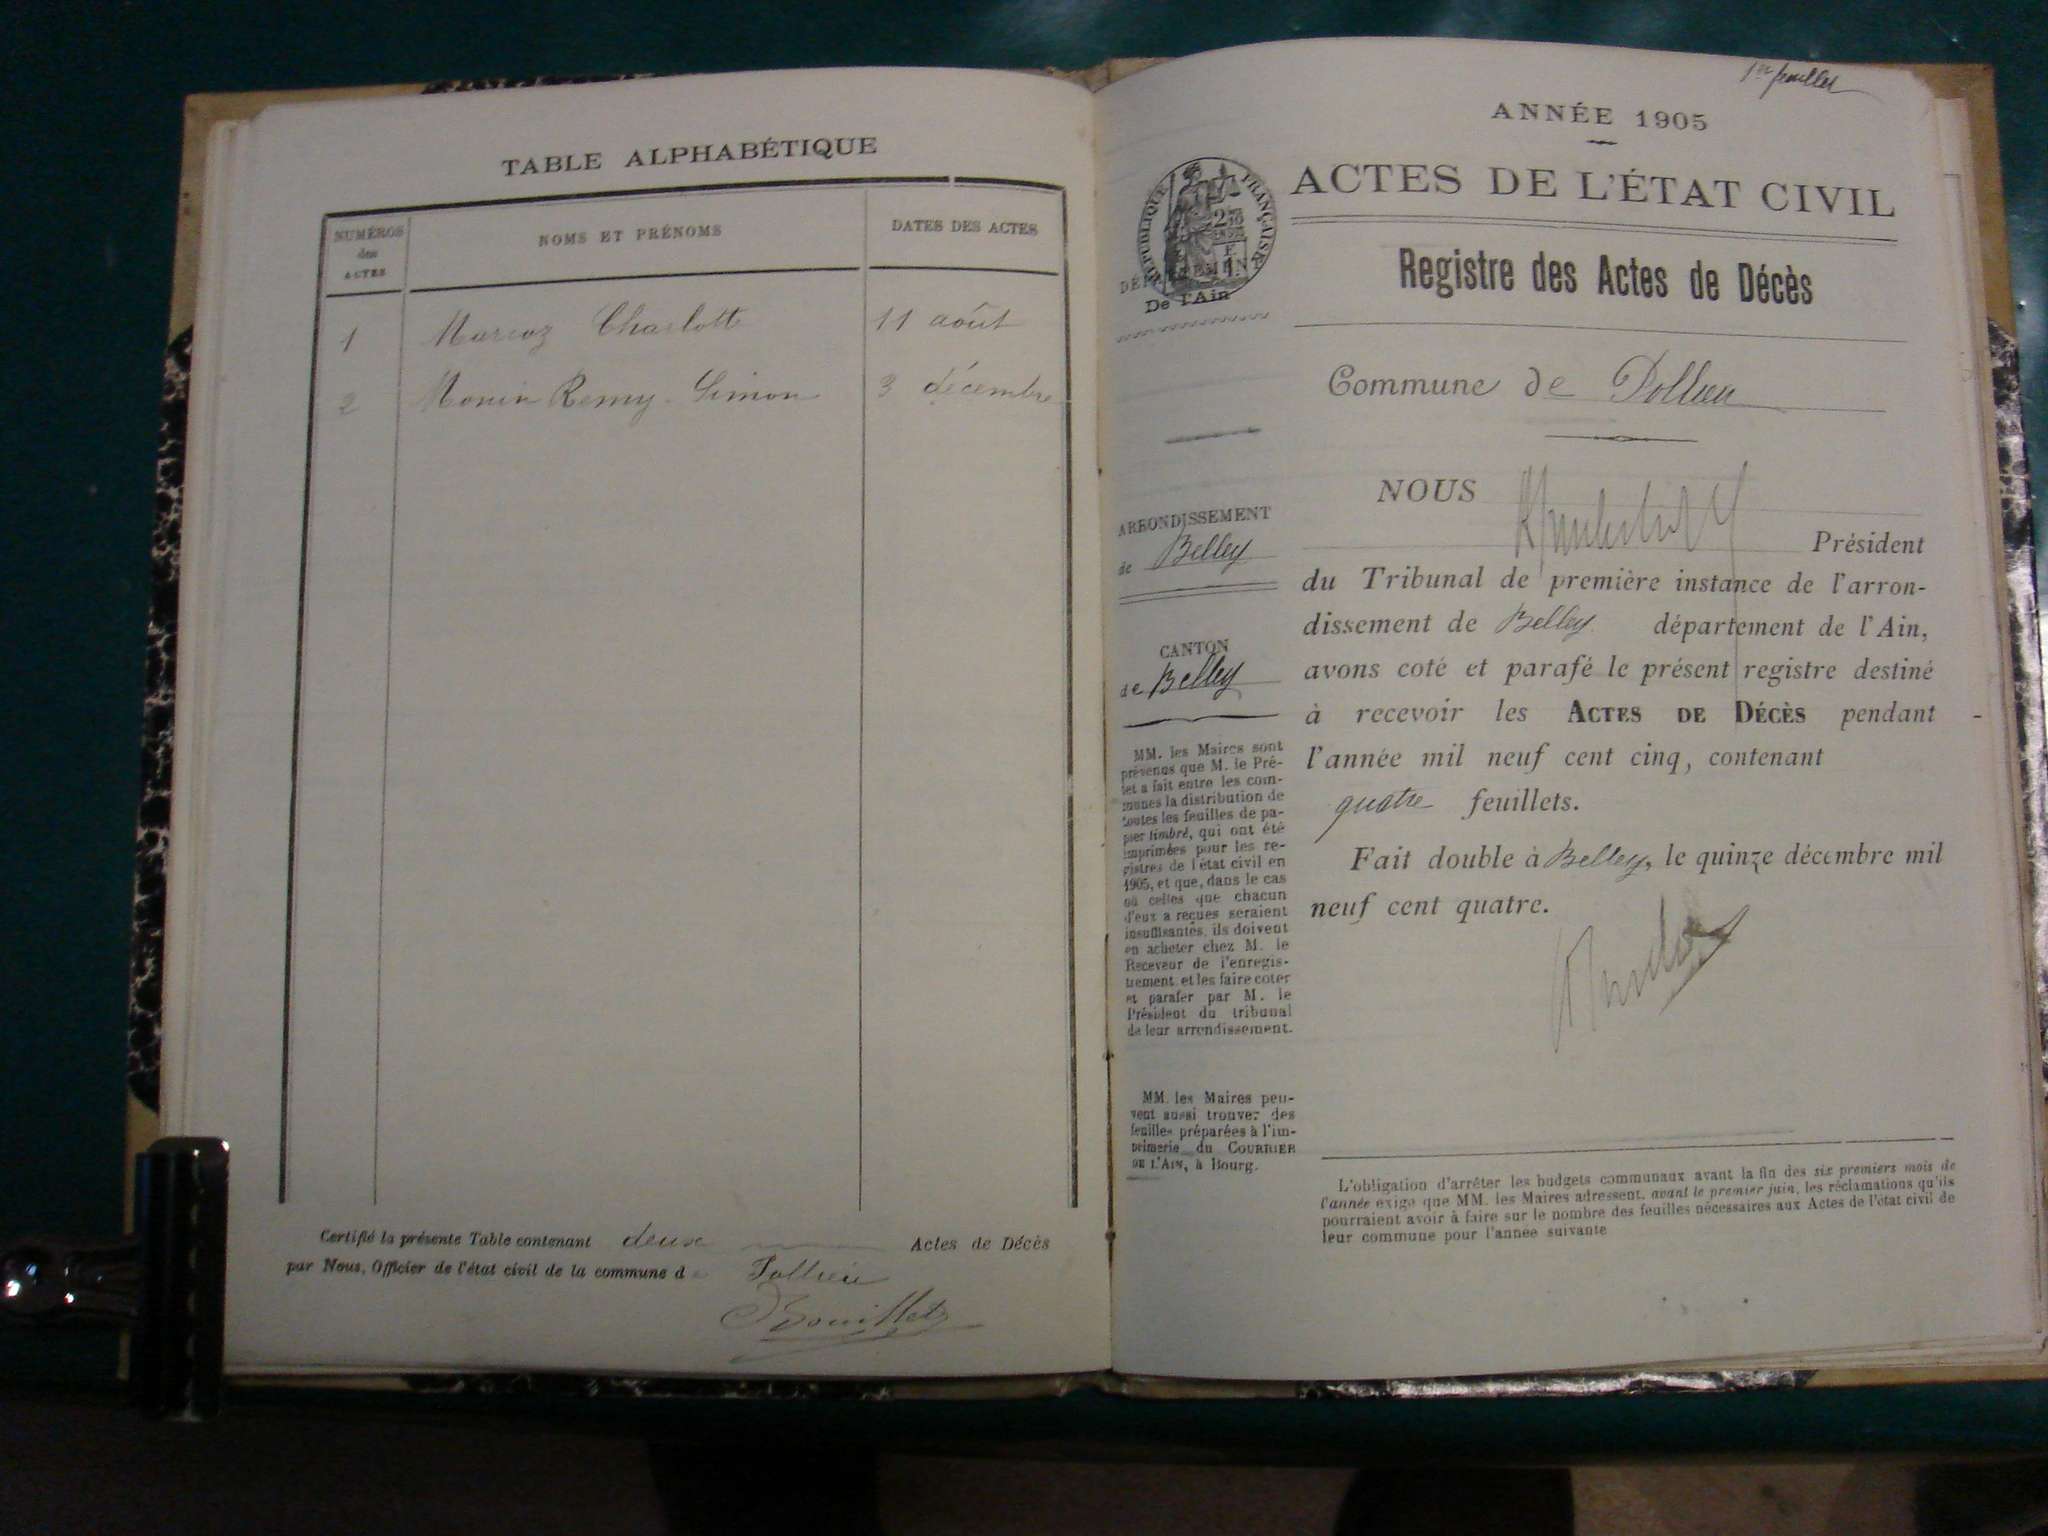 TABLE ALPHABÉTIQUE
NUMÉROS
des
ACTES
NOMS ET PRÉNOMS
DATES DES ACTES
1 Marcoz Charlotte 11 août
2 Monin Remy-Simon 3 décembre
Certifié la présente Table contenant deux Actes de Décès
par Nous, Officier de l'état civil de la commune de Pollieu
Bouillet
1er feuillet
ANNÉE 1905
ACTES DE L'ÉTAT CIVIL
RÉPUBLIQUE FRANÇAISE
De l'Ain
Registre des Actes de Décès
Commune de Pollieu
ARRONDISSEMENT
de Belley
CANTON
de Belley
MM. les Maires sont
prévenus que M. le Pré-
fet a fait entre les com-
munes la distribution de
toutes les feuilles de pa-
pier timbré, qui ont été
imprimées pour les re-
gistres de l'état civil en
1905, et que, dans le cas
où celles que chacun
d'eux a reçues seraient
insuffisantes, ils doivent
en acheter chez M. le
Receveur de l'enregis-
trement et les faire coter
et parafer par M. le
Président du tribunal
de leur arrondissement.
MM. les Maires peu-
vent aussi trouver des
feuilles préparées à l'im-
primerie du COURRIER
DE L'AIN, à Bourg.
NOUS
Président
du Tribunal de première instance de l'arron-
dissement de Belley département de l'Ain,
avons coté et parafé le présent registre destiné
à recevoir les ACTES DE DÉCÈS pendant
l'année mil neuf cent cinq, contenant
quatre feuillets.
Fait double à Belley, le quinze décembre mil
neuf cent quatre.
L'obligation d'arrêter les budgets communaux avant la fin des six premiers mois de
l'année exige que MM. les Maires adressent, avant le premier juin, les réclamations qu'ils
pourraient avoir à faire sur le nombre des feuilles nécessaires aux Actes de l'état civil de
leur commune pour l'année suivante